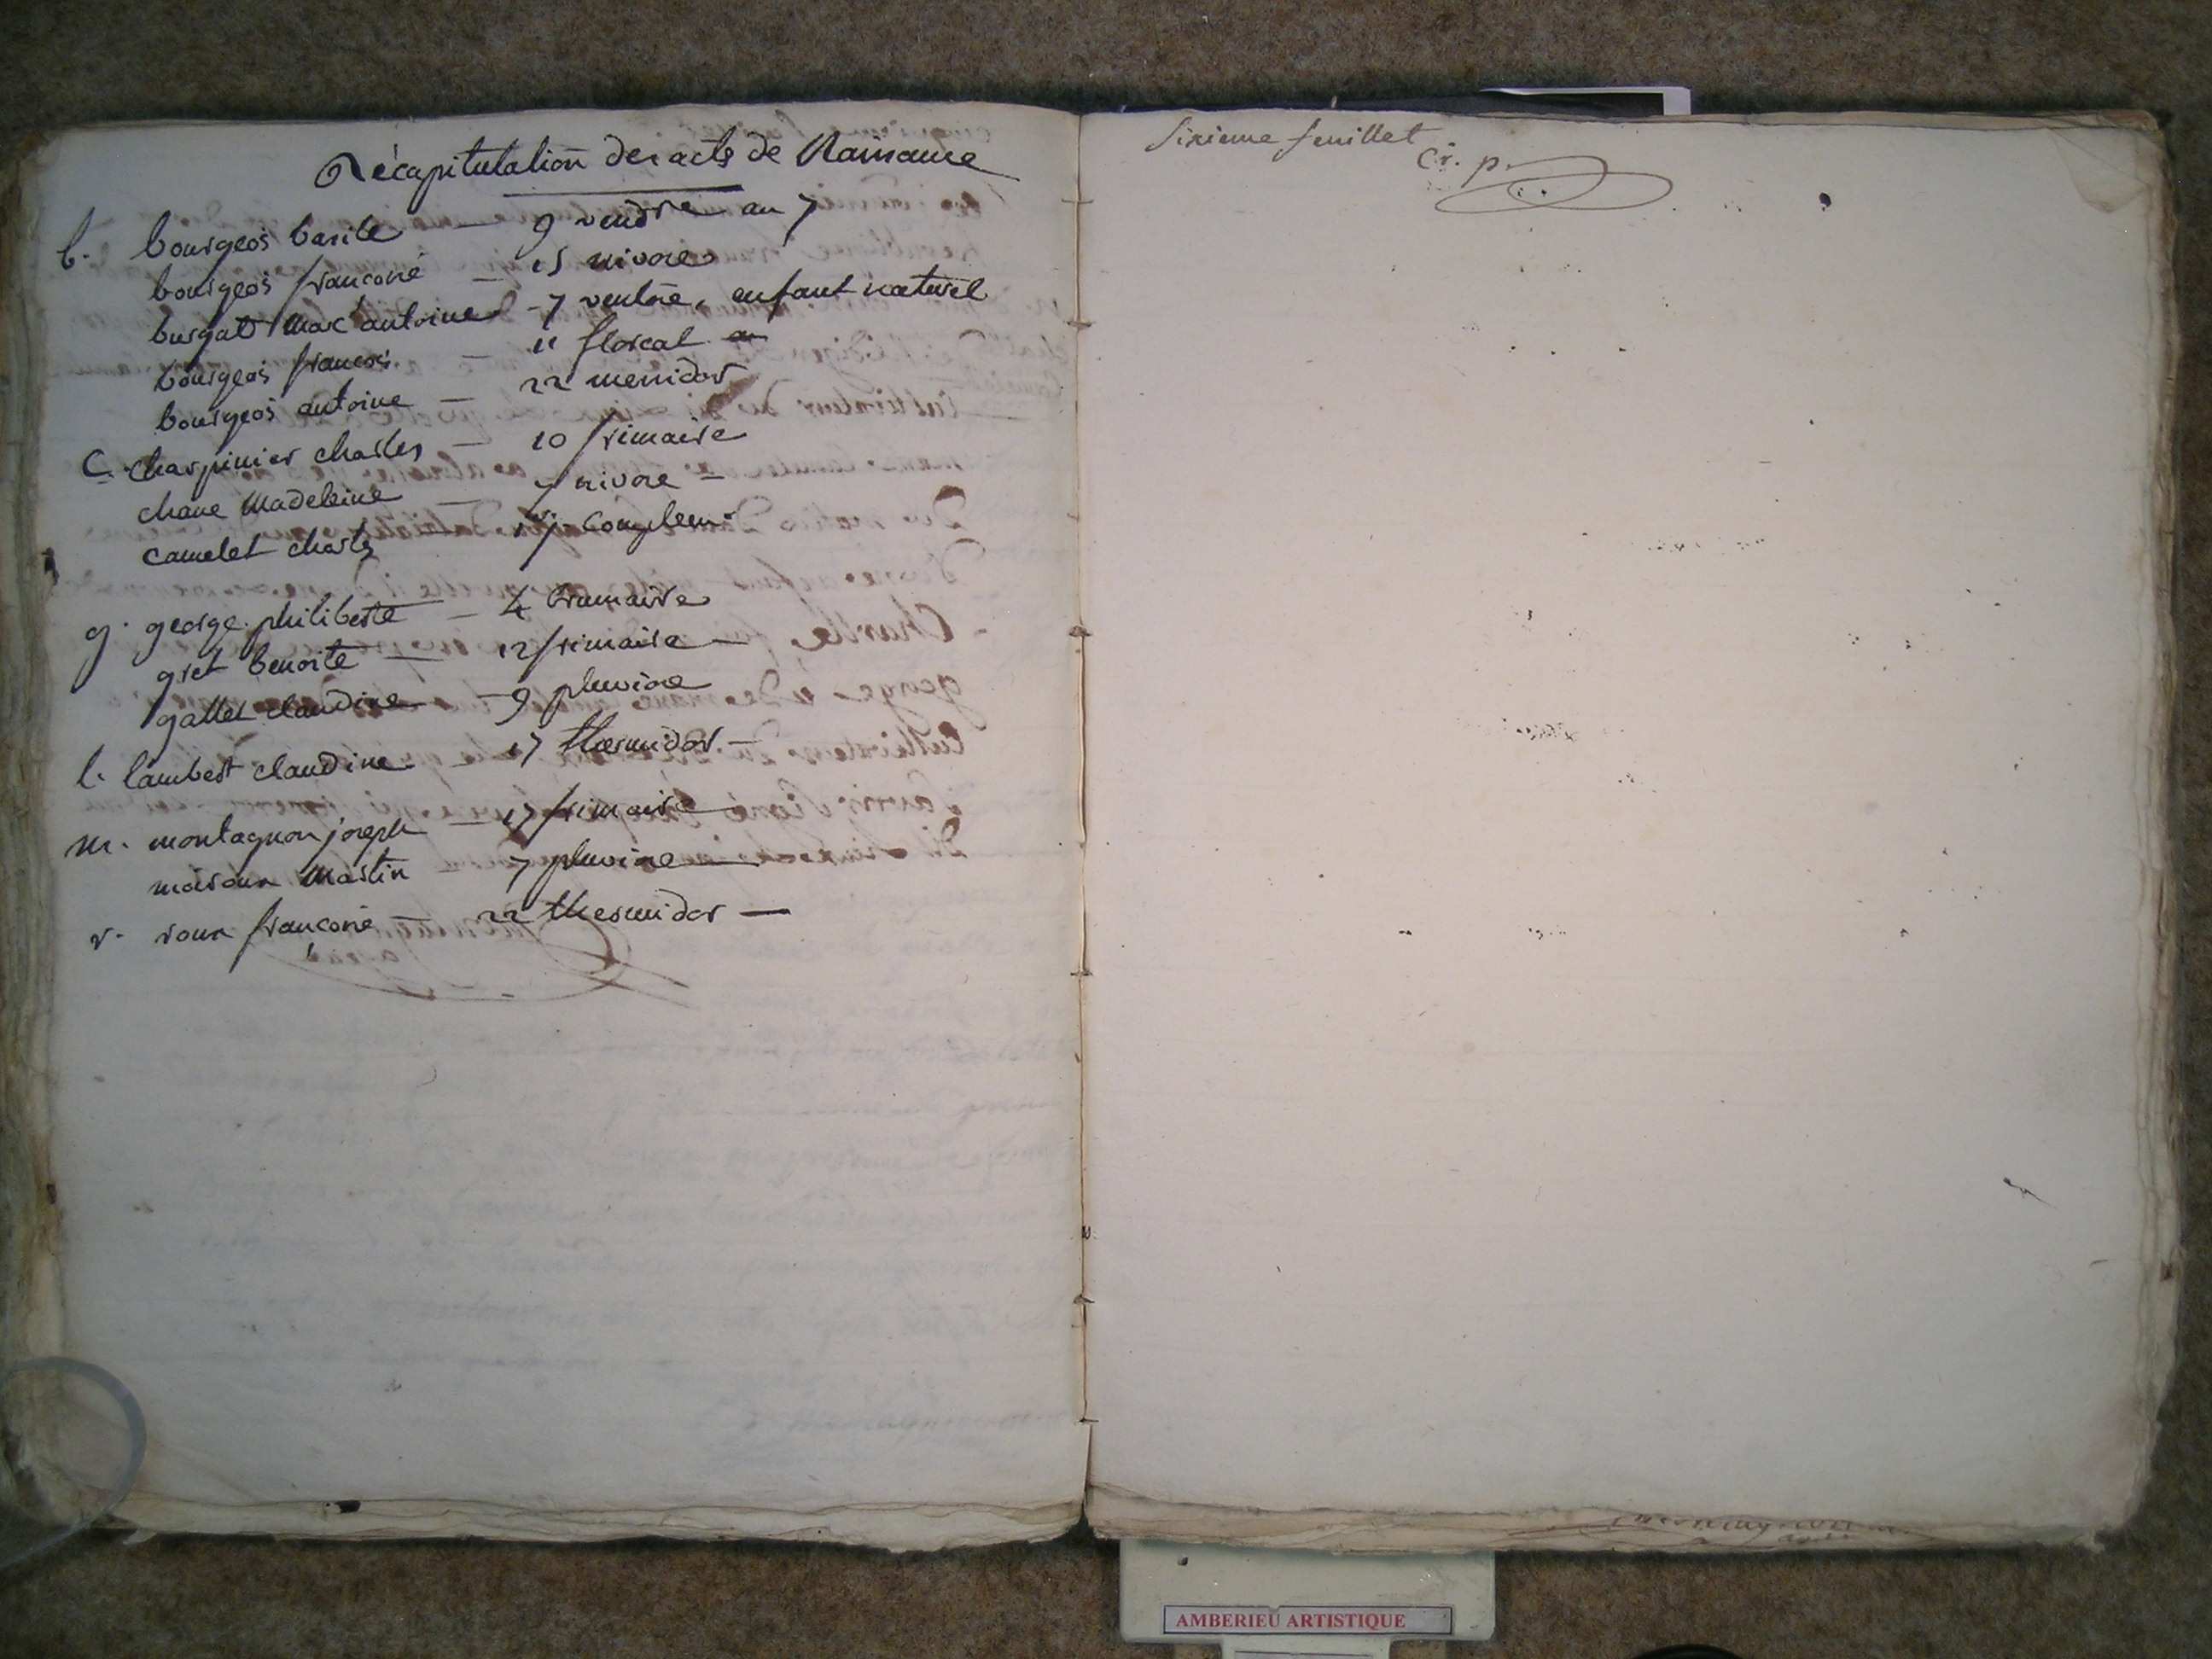 Récapitulation des acts de Naissance
b. bourgeois basile — 9 vendre an 7
bourgeois françoise — 15 nivose
burgat Marc antoine — 7 ventose, enfant naturel
bourgeois françois — 11 floreal
bourgeois antoine — 22 messidor
C. charpinier charles — 10 frimaire
Madeleine — nivose —
camelet charles complem.
g. george philiberte — 4 brumaire
gret benoite — 12 frimaire —
gallet claudine — 9 pluviose
l. lambert claudine 17 thermidor —
m. montagnon joseph — 17 frimaire
Martin 7 pluviose —
r. roux françoise — 22 thermidor —
Sixieme feuillet
C. p.
AMBERIEU ARTISTIQUE